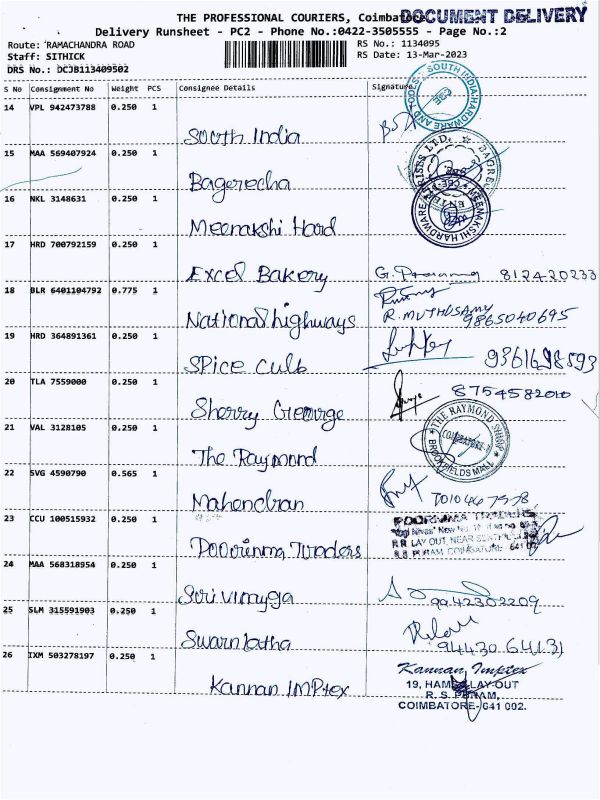 THE PROFESSIONAL COURIERS, Coimbatore
DOCUMENT DELIVERY
Delivery Runsheet - PC2 - Phone No.:0422-3505555 - Page No.:2
Route: RAMACHANDRA ROAD
RS No.: 1134095
Staff: SITHICK
RS Date: 13-Mar-2023
DRS No.: DCJB113409502
S No Consignment No Weight PCS Consignee Details Signature
14 VPL 942473788 0.250 1
South India
SOUTH INDIA HARDWARE AND TOOLS
CBE
15 MAA 569407924 0.250 1
Bagerecha
16 NKL 3148631 0.250 1
Meenakshi Hard
MEENAKSHI HARDWARE
17 HRD 700792159 0.250 1
Excel Bakery 812420233
18 BLR 6401104792 0.775 1
National highways R. MUTHUSAMY
9865040695
19 HRD 364891361 0.250 1
Spice Culb 9361698593
20 TLA 7559000 0.250 1
8754582010
Sherry George
21 VAL 3128105 0.250 1
THE RAYMOND SHOP
COIMBATORE
BROOKFIELDS MALL
The Raymond
22 SVG 4590790 0.565 1
Mahendran
23 CCU 100515932 0.250 1
POORNIMA TRADERS
R.S. PURAM, COIMBATORE 641 002
Poorinma Traders
24 MAA 568318954 0.250 1
9942302209
25 SLM 315591903 0.250 1
Swarnlatha 94430 64131
26 IXM 503278197 0.250 1
Kannan Imptex
Kannan IMPtex
19, LAY-OUT
R. S. PURAM,
COIMBATORE-641 002.